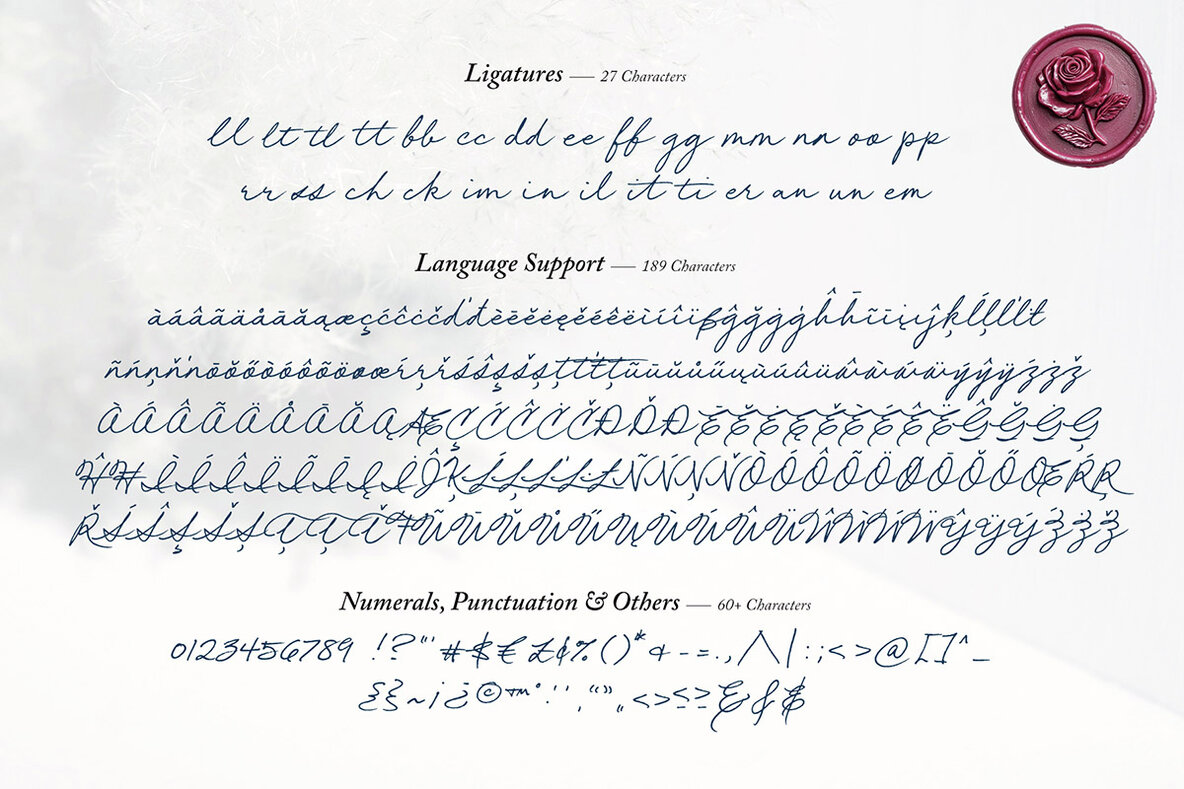 Ligatures — 27 Characters
ll lt tl tt bb cc dd ee ff gg mm nn oo pp
rr ss ch ck im in il it ti er an un em
Language Support — 189 Characters
àáâãäåāăąæçćĉċčďđèēĕėęěéêëìíîïßĝğġģĥħĩīįıĵķĺļľŀł
ñńņňŉōŏőòóôõöøœŕŗřśŝşšșţťŧțũūŭůűųùúûüŵẁẃẅýŷÿźżž
ÀÁÂÃÄÅĀĂĄÆÇĆĈĊČÐĎĐĒĔĖĘĚÈÉÊËĜĞĠĢ
ĤĦÌÍÎÏĨĪĬĮİĴĶĹĻĽĿŁÑŃŅŇÒÓÔÕÖØŌŎŐŒŔŖ
ŘŚŜŞŠȘŢȚŤŦŨŪŬŮŰŲÙÚÛÜŴẀẂẄŶŸÝŹŻŽ
Numerals, Punctuation & Others — 60+ Characters
0123456789 !?"'#$€£¢%()*+-=.,/\|:;<>@[]^_
{}~¡¿©™°·‘’‚“”„<>≤≥&